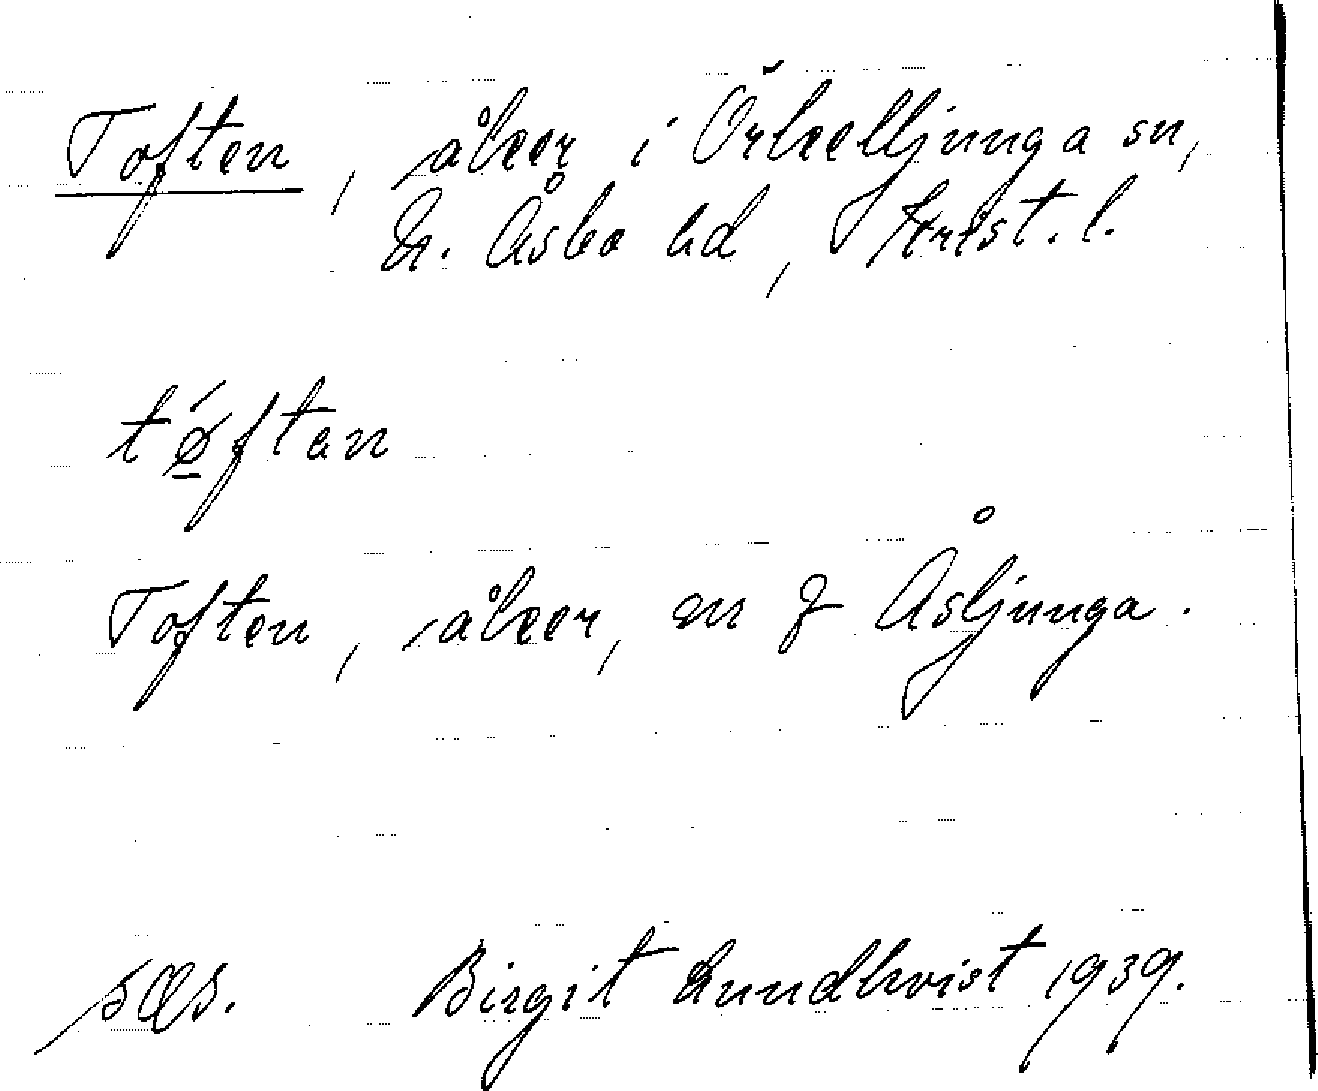 Toften, åker i Örkelljunga sn,
N. Åsbo hd, Krist. l.
tǿ̠ftan
Toften, åker, en g Åsljunga.
sæs. Birgit Lundkvist 1939.